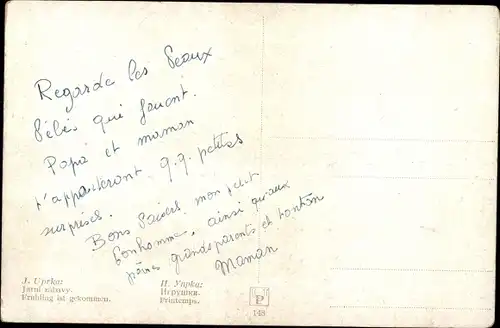 Regarde les beaux
bébés qui jouent.
Papa et maman
t'apporteront q.q. petites
surprises.
Bons baisers mon petit
bonhomme, ainsi qu'aux
grands parents et tonton
Maman
J. Uprka:
Jarní zábavy.
Frühling ist gekommen.
И. Упрка:
Игрушки.
Printemps.
P
148